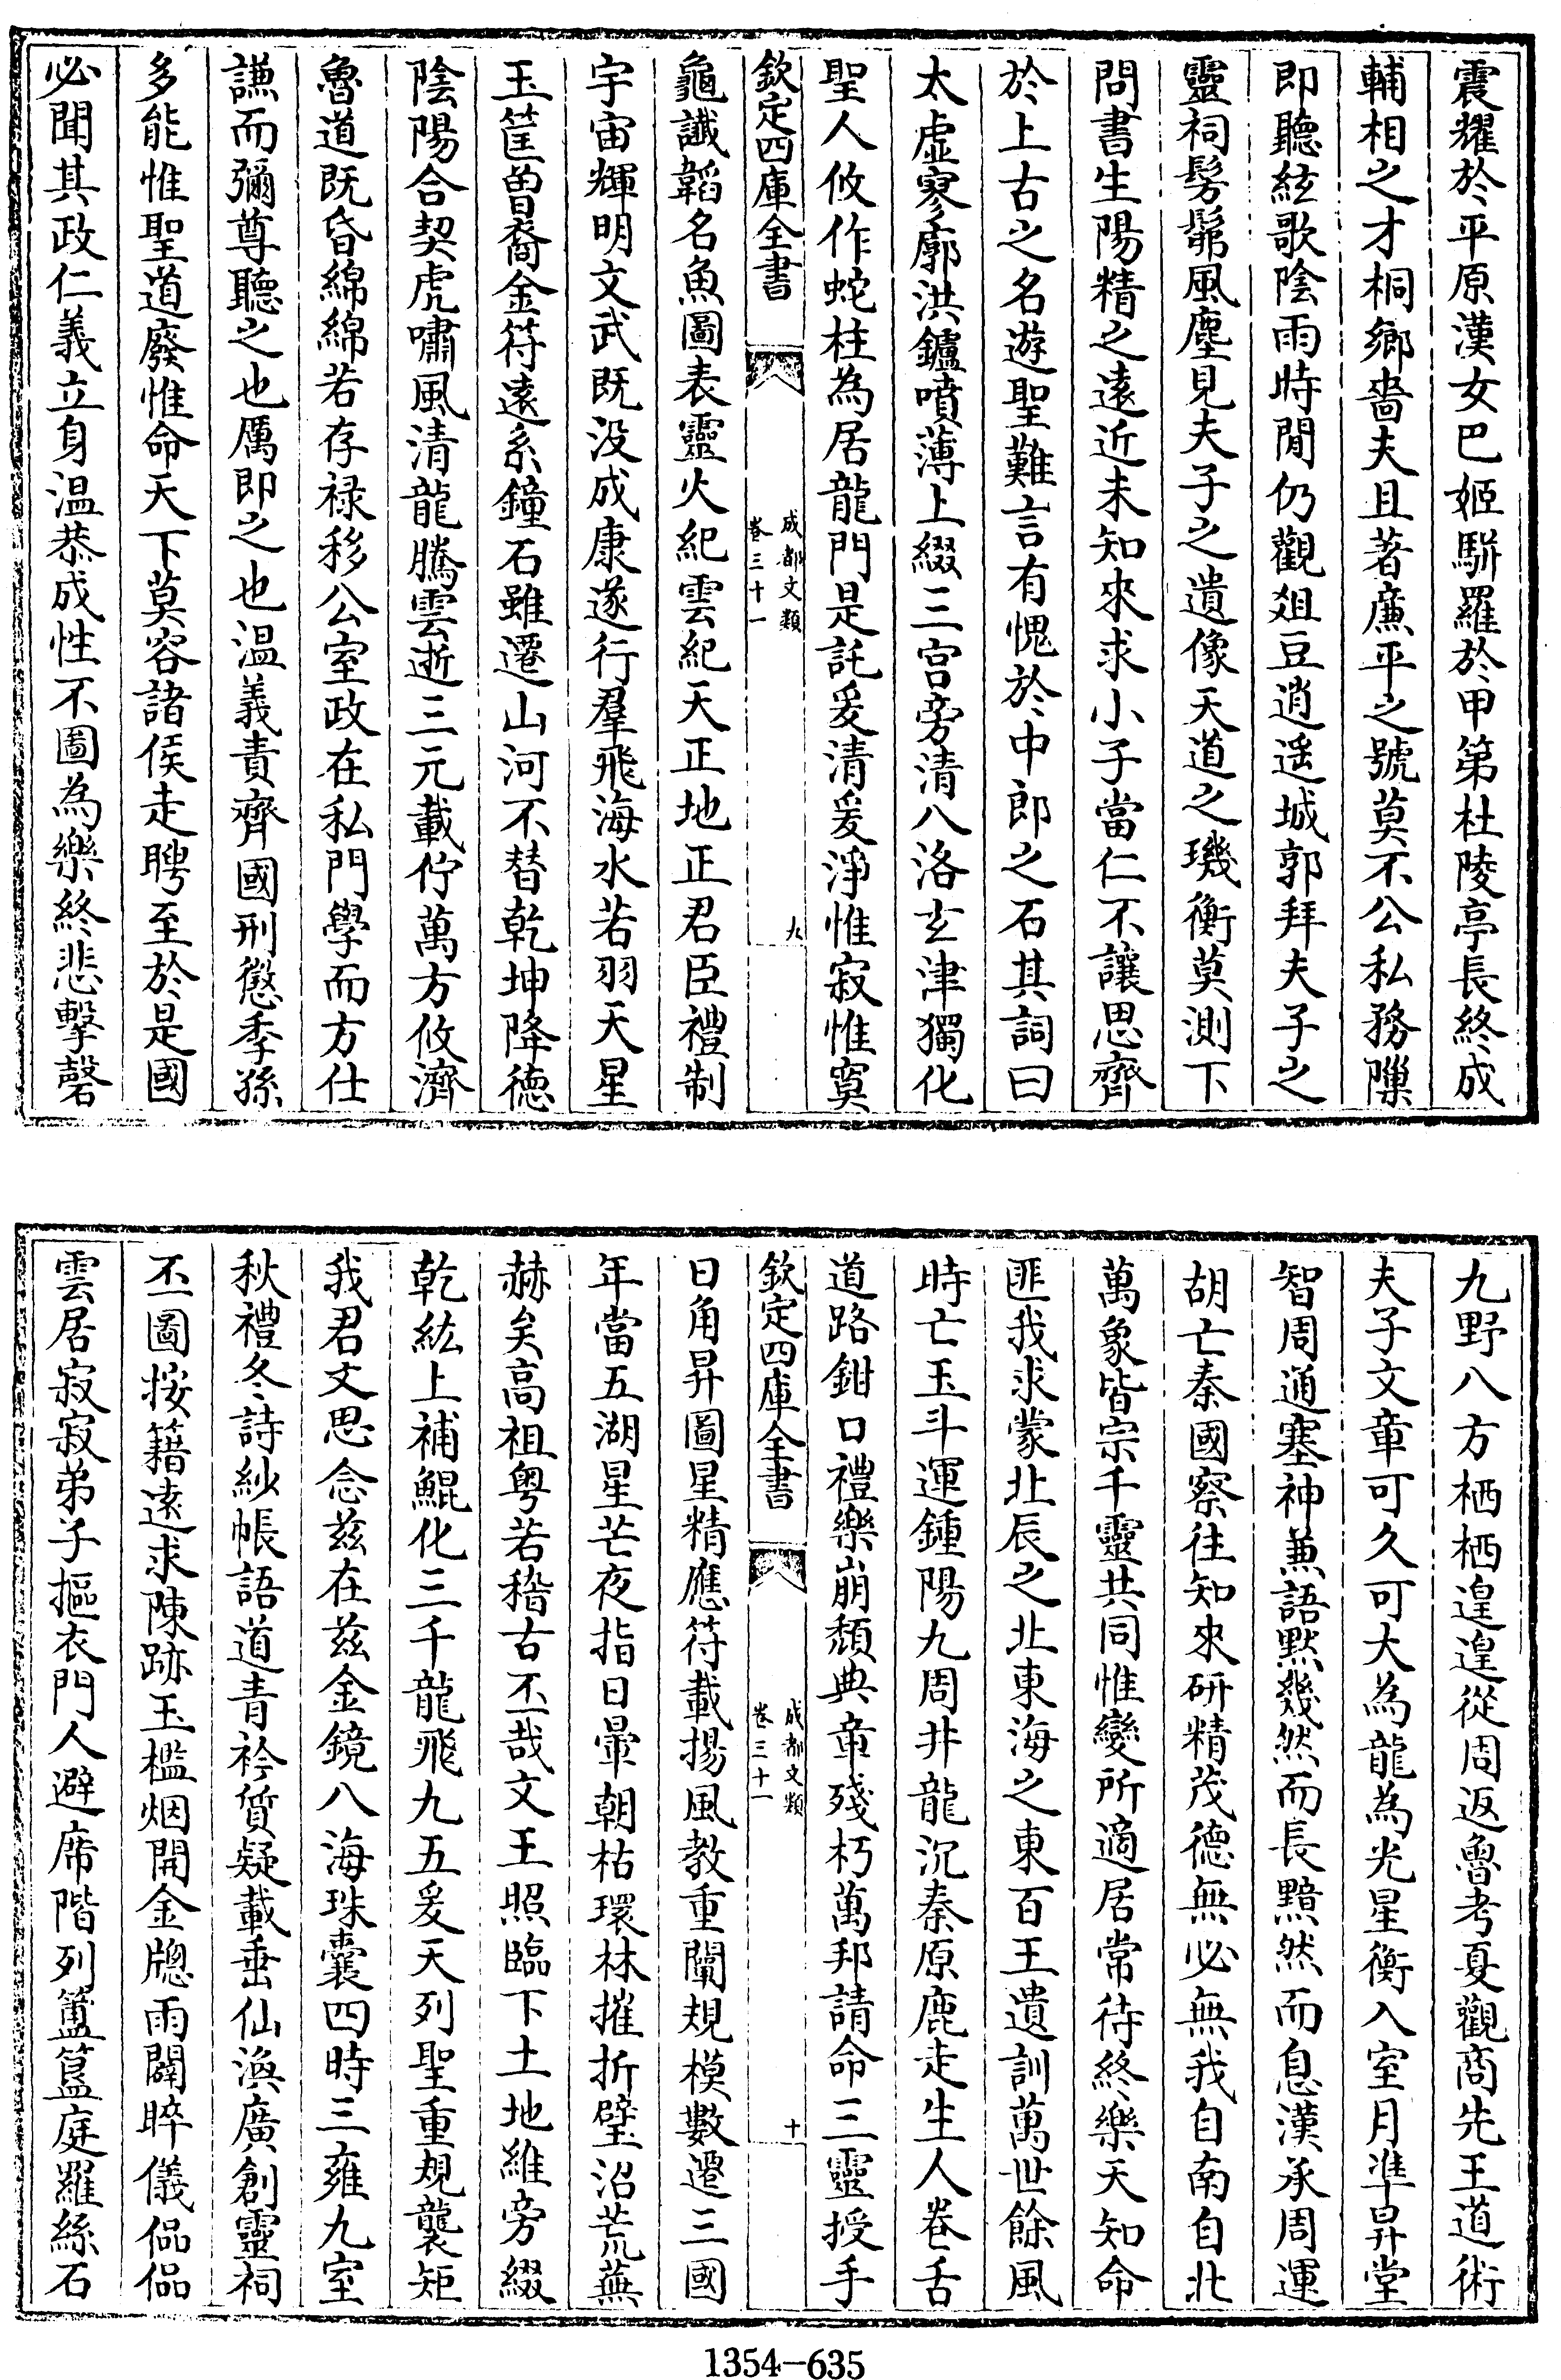 震耀於平原漢女巴姬駢羅於甲第杜陵亭長終成
輔相之才桐鄉嗇夫且著廉平之號莫不公私務隟
即聽絃歌陰雨時閒仍觀俎豆逍遥城郭拜夫子之
靈祠髣髴風塵見夫子之遺像天道之璣衡莫測下
問書生陽精之遠近未知來求小子當仁不讓思齊
於上古之名遊聖難言有愧於中郎之石其詞曰
太虚寥廓洪鑪噴薄上綴三宫旁清八洛玄津獨化
聖人攸作蛇柱為居龍門是託爰清爰淨惟寂惟寞
欽定四庫全書
成都文類
卷三十一
九
龜讖韜名魚圖表靈火紀雲紀天正地正君臣禮制
宇宙輝明文武既没成康遂行羣飛海水若羽天星
玉筐曽裔金符遠系鐘石雖遷山河不替乾坤降德
陰陽合契虎嘯風清龍騰雲逝三元載佇萬方攸濟
魯道既昏綿綿若存禄移公室政在私門學而方仕
謙而彌尊聽之也厲即之也温義責齊國刑懲季孫
多能惟聖道廢惟命天下莫容諸侯走聘至於是國
必聞其政仁義立身温恭成性不圖為樂終悲擊磬
九野八方栖栖遑遑從周返魯考夏觀商先王道術
夫子文章可久可大為龍為光星衡入室月準昇堂
智周通塞神兼語默幾然而長黯然而息漢承周運
胡亡秦國察往知來研精茂德無必無我自南自北
萬象皆宗千靈共同惟變所適居常待終樂天知命
匪我求蒙北辰之北東海之東百王遺訓萬世餘風
時亡玉斗運鍾陽九周井龍沉秦原鹿走生人卷舌
道路鉗口禮樂崩頹典章殘朽萬邦請命三靈授手
欽定四庫全書
成都文類
卷三十一
十
日角昇圖星精應符載揚風教重闡規模數遷三國
年當五湖星芒夜指日暈朝枯環林摧折璧沼荒蕪
赫矣高祖粤若稽古丕哉文王照臨下土地維旁綴
乾紘上補鯤化三千龍飛九五爰天列聖重規襲矩
我君文思念兹在兹金鏡八海珠囊四時三雍九室
秋禮冬詩紗帳語道青衿質疑載垂仙渙廣創靈祠
丕圖按籍遠求陳跡玉檻烟開金牎雨闢睟儀偘偘
雲居寂寂弟子摳衣門人避席階列簠簋庭羅絲石
1354—635